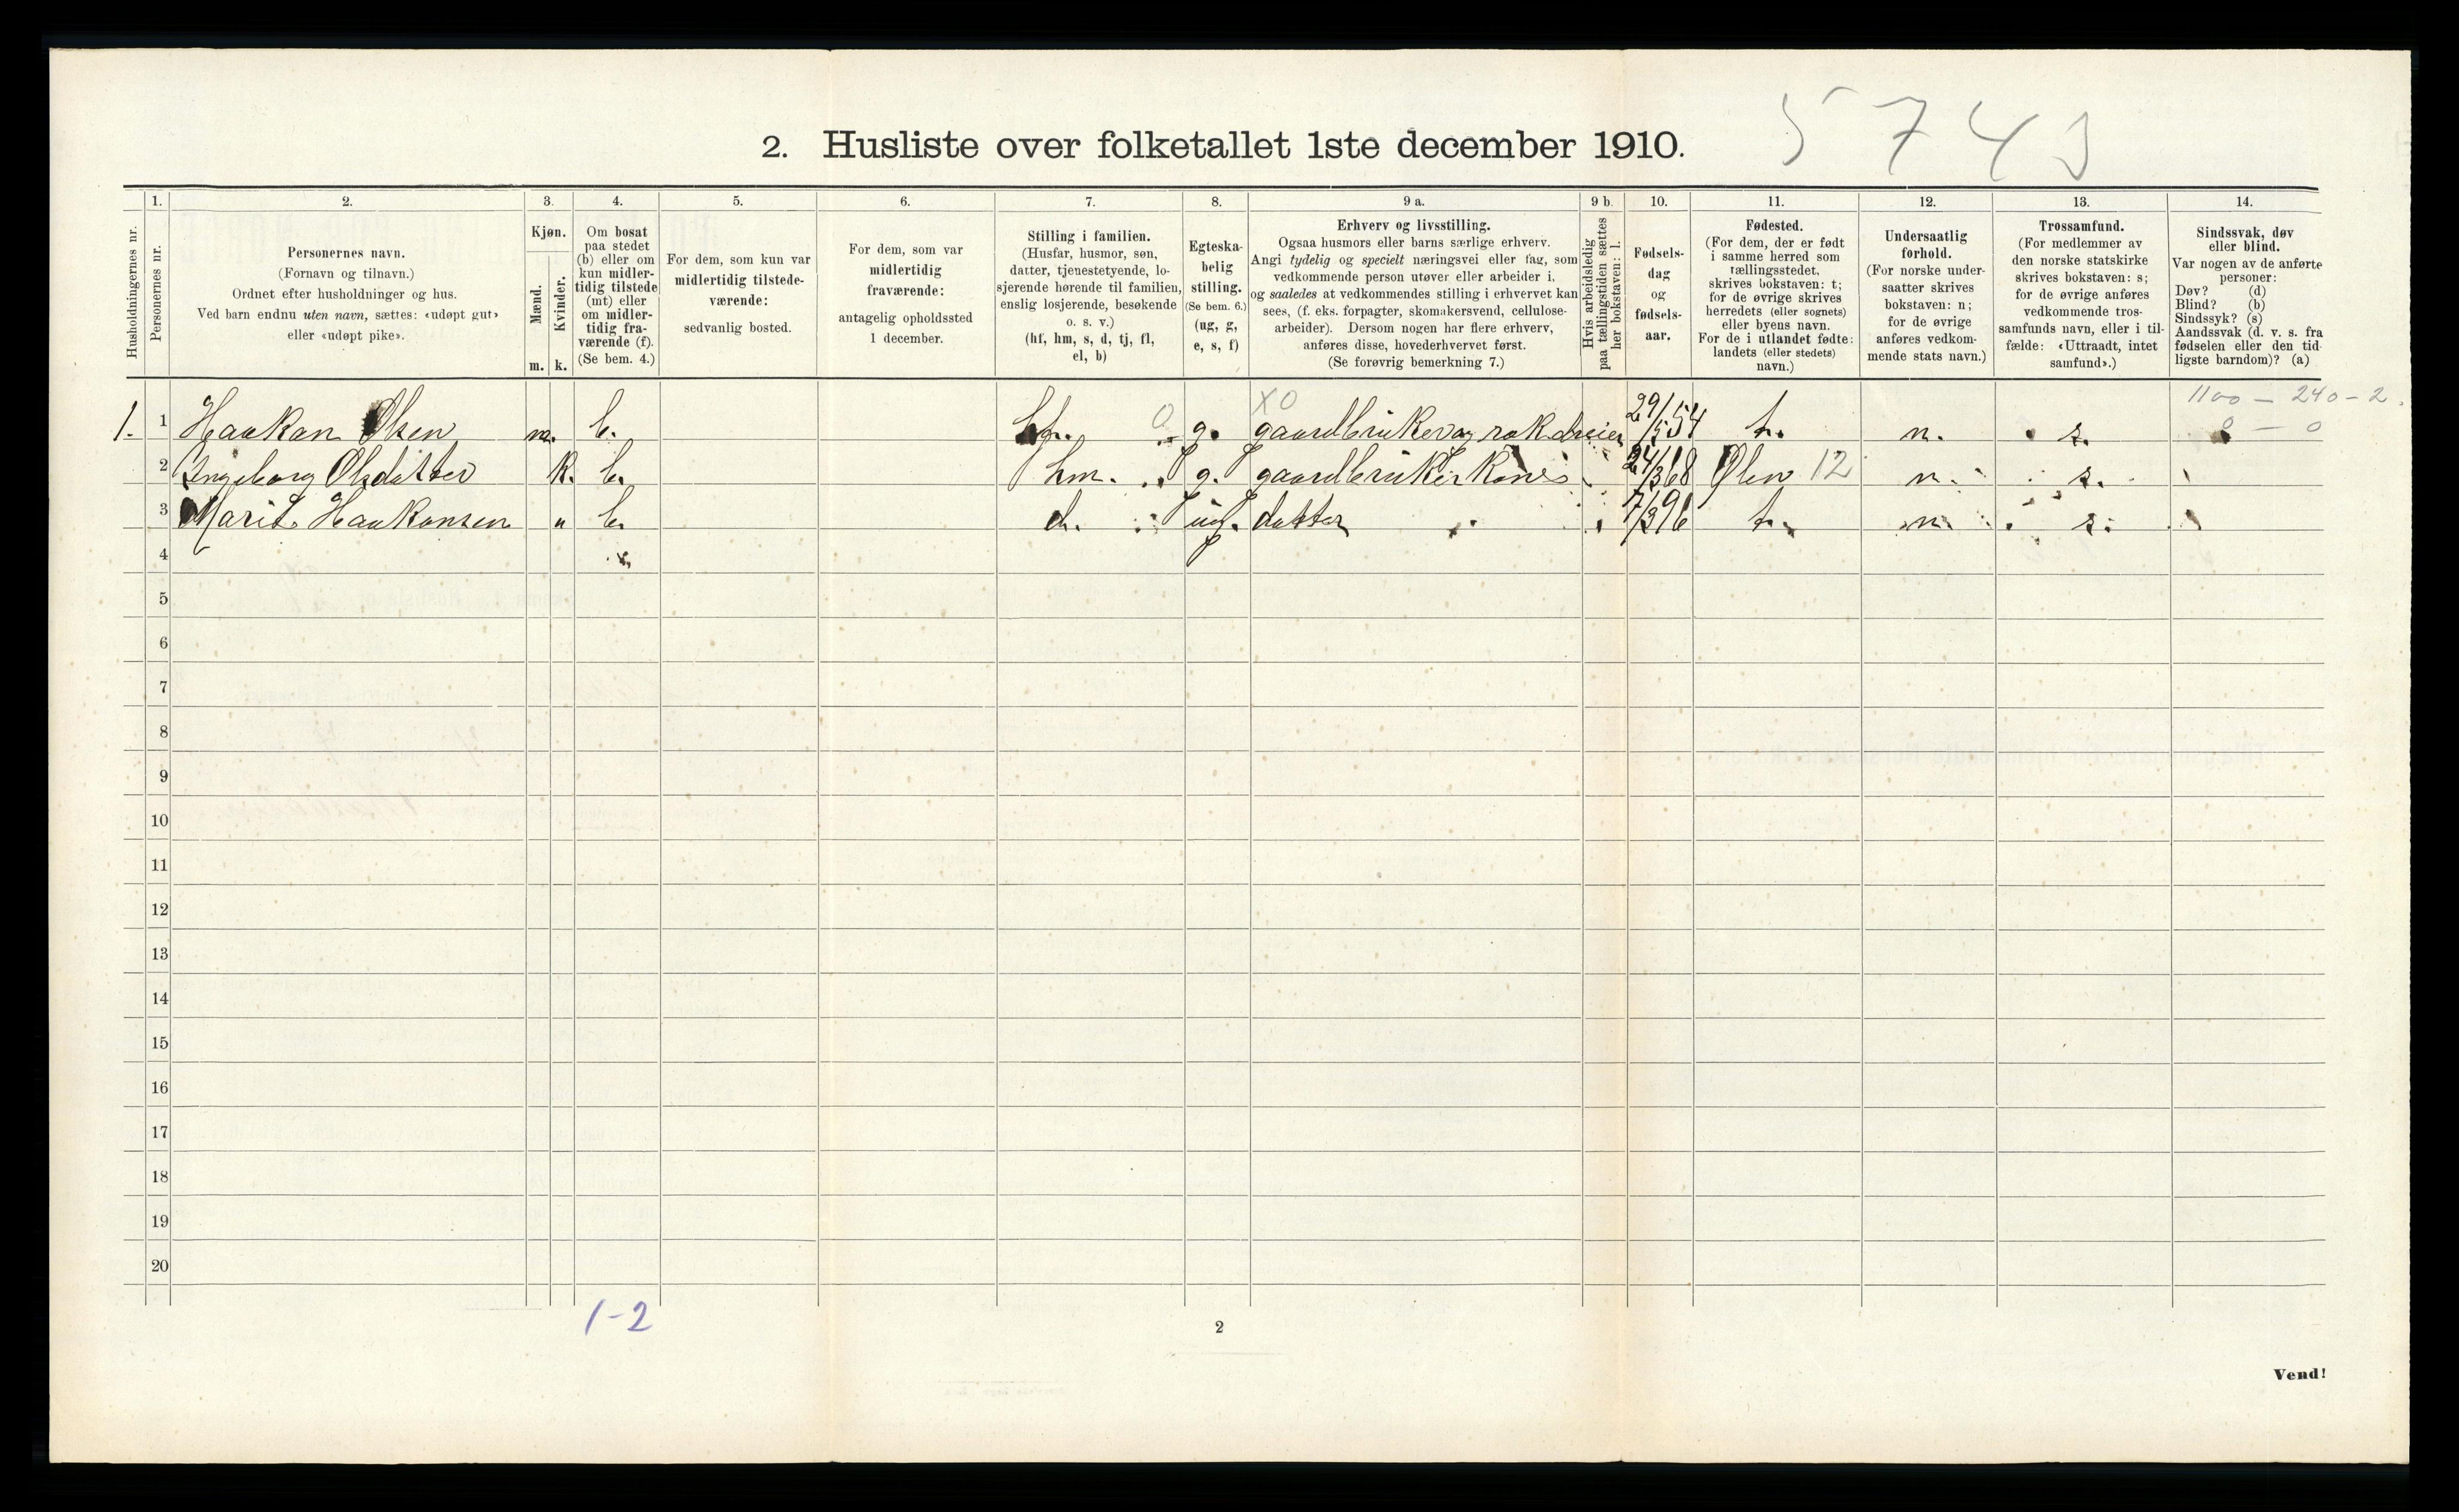 5743
2. Husliste over folketallet 1ste december 1910.
Husholdningernes nr.
1.
Personernes nr.
2.
Personernes navn.
(Fornavn og tilnavn.)
Ordnet efter husholdninger og hus.
Ved barn endnu uten navn, sættes: «udøpt gut»
eller «udøpt pike».
3.
Kjøn.
Mænd.
Kvinder.
m. k.
4.
Om bosat
paa stedet
(b) eller om
kun midler-
tidig tilstede
(mt) eller
om midler-
tidig fra-
værende (f).
(Se bem. 4.)
5.
For dem, som kun var
midlertidig tilstede-
værende:
sedvanlig bosted.
6.
For dem, som var
midlertidig
fraværende:
antagelig opholdssted
1 december.
7.
Stilling i familien.
(Husfar, husmor, søn,
datter, tjenestetyende, lo-
sjerende hørende til familien,
enslig losjerende, besøkende
o. s. v.)
(hf, hm, s, d, tj, fl,
el, b)
8.
Egteska-
belig
stilling.
(Se bem. 6.)
(ug, g,
e, s, f)
9 a.
Erhverv og livsstilling.
Ogsaa husmors eller barns særlige erhverv.
Angi tydelig og specielt næringsvei eller fag, som
vedkommende person utøver eller arbeider i,
og saaledes at vedkommendes stilling i erhvervet kan
sees, (f. eks. forpagter, skomakersvend, cellulose-
arbeider). Dersom nogen har flere erhverv,
anføres disse, hovederhvervet først.
(Se forøvrig bemerkning 7.)
9 b.
Hvis arbeidsledig
paa tællingstiden sættes
her bokstaven: l.
10.
Fødsels-
dag
og
fødsels-
aar.
11.
Fødested.
(For dem, der er født
i samme herred som
tællingsstedet,
skrives bokstaven: t;
for de øvrige skrives
herredets (eller sognets)
eller byens navn.
For de i utlandet fødte:
landets (eller stedets)
navn.)
12.
Undersaatlig
forhold.
(For norske under-
saatter skrives
bokstaven: n;
for de øvrige
anføres vedkom-
mende stats navn.)
13.
Trossamfund.
(For medlemmer av
den norske statskirke
skrives bokstaven: s;
for de øvrige anføres
vedkommende tros-
samfunds navn, eller i til-
fælde: «Uttraadt, intet
samfund».)
14.
Sindssvak, døv
eller blind.
Var nogen av de anførte
personer:
Døv? (d)
Blind? (b)
Sindssyk? (s)
Aandssvak (d. v. s. fra
fødselen eller den tid-
ligste barndom)? (a)
X0 1100 - 240 - 2.
1. 1 Haakan Olsen m. b. hf. 0 g. gaardbruker og rokdreier 29/5 54 t. n. s. 0 - 0
2 Ingeborg Olsdatter k. b. hm. g. gaardbrukerkone 24/3 68 Ølen 12 n. s.
3 Marit Haakansen " b. d. ug. datter 7/3 96 t. n. s.
4
5
6
7
8
9
10
11
12
13
14
15
16
17
18
19
20
1-2
2
Vend!